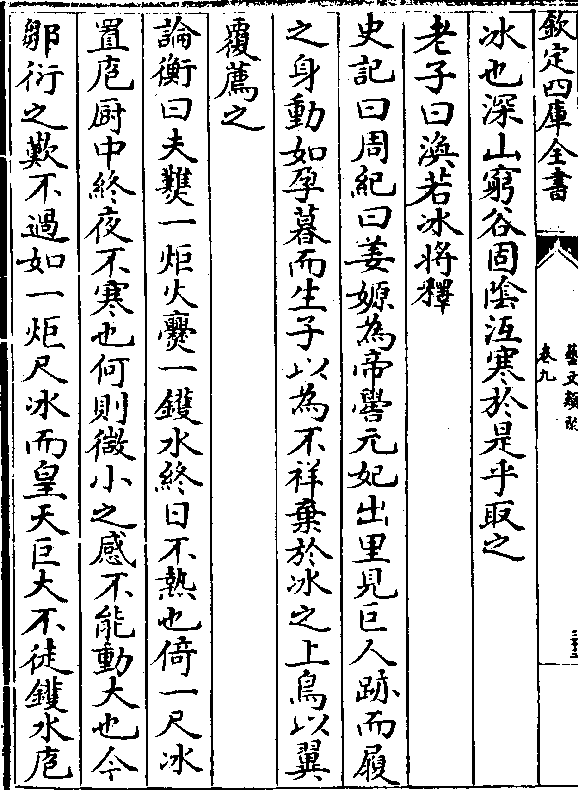 欽定四庫全書
藝文類聚
卷九
冰也深山窮谷固陰沍寒於是乎取之
老子曰渙若冰將釋
史記曰周紀曰姜嫄為帝嚳元妃出里見巨人跡而履
之身動如孕暮而生子以為不祥棄於冰之上鳥以翼
覆薦之
論衡曰夫爇一炬火爨一鑊水終日不熱也倚一尺冰
置庖厨中終夜不寒也何則微小之感不能動大也今
鄒衍之歎不過如一炬尺冰而皇天巨大不徒鑊水庖